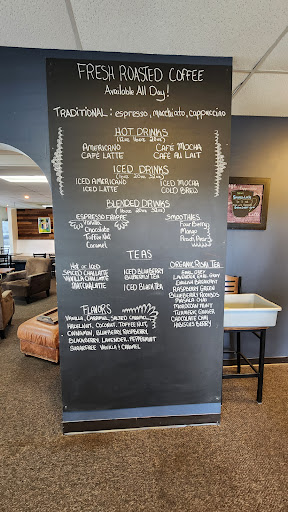 FRESH ROASTED COFFEE
Available All Day!
TRADITIONAL: espresso, macchiato, cappuccino
HOT DRINKS
(12oz 16oz 20oz)
AMERICANO CAFÉ MOCHA
CAFÉ LATTE CAFÉ AU LAIT
ICED DRINKS
ICED AMERICANO ICED MOCHA
ICED LATTE COLD BREW
BLENDED DRINKS
ESPRESSO FRAPPE SMOOTHIES
Vanilla Four Berry
Chocolate Mango
Toffee Nut Peach Pear
Caramel
TEAS
HOT or ICED
SPICED CHAI LATTE
VANILLA CHAI LATTE
MATCHA LATTE
ICED BLUEBERRY
BUTTERFLY TEA
ICED BLACK TEA
ORGANIC RISHI TEA
EARL GREY
LAVENDER EARL GREY
ENGLISH BREAKFAST
RASPBERRY GREEN
BLUEBERRY ROOIBOS
MASALA CHAI
MOROCCAN MINT
TURMERIC GINGER
CHOCOLATE CHAI
HIBISCUS BERRY
FLAVORS
VANILLA, CARAMEL, SALTED CARAMEL,
HAZELNUT, COCONUT, TOFFEE NUT,
CINNAMON, BLUEBERRY, RASPBERRY,
BLACKBERRY, LAVENDER, PEPPERMINT
SUGARFREE VANILLA & CARAMEL